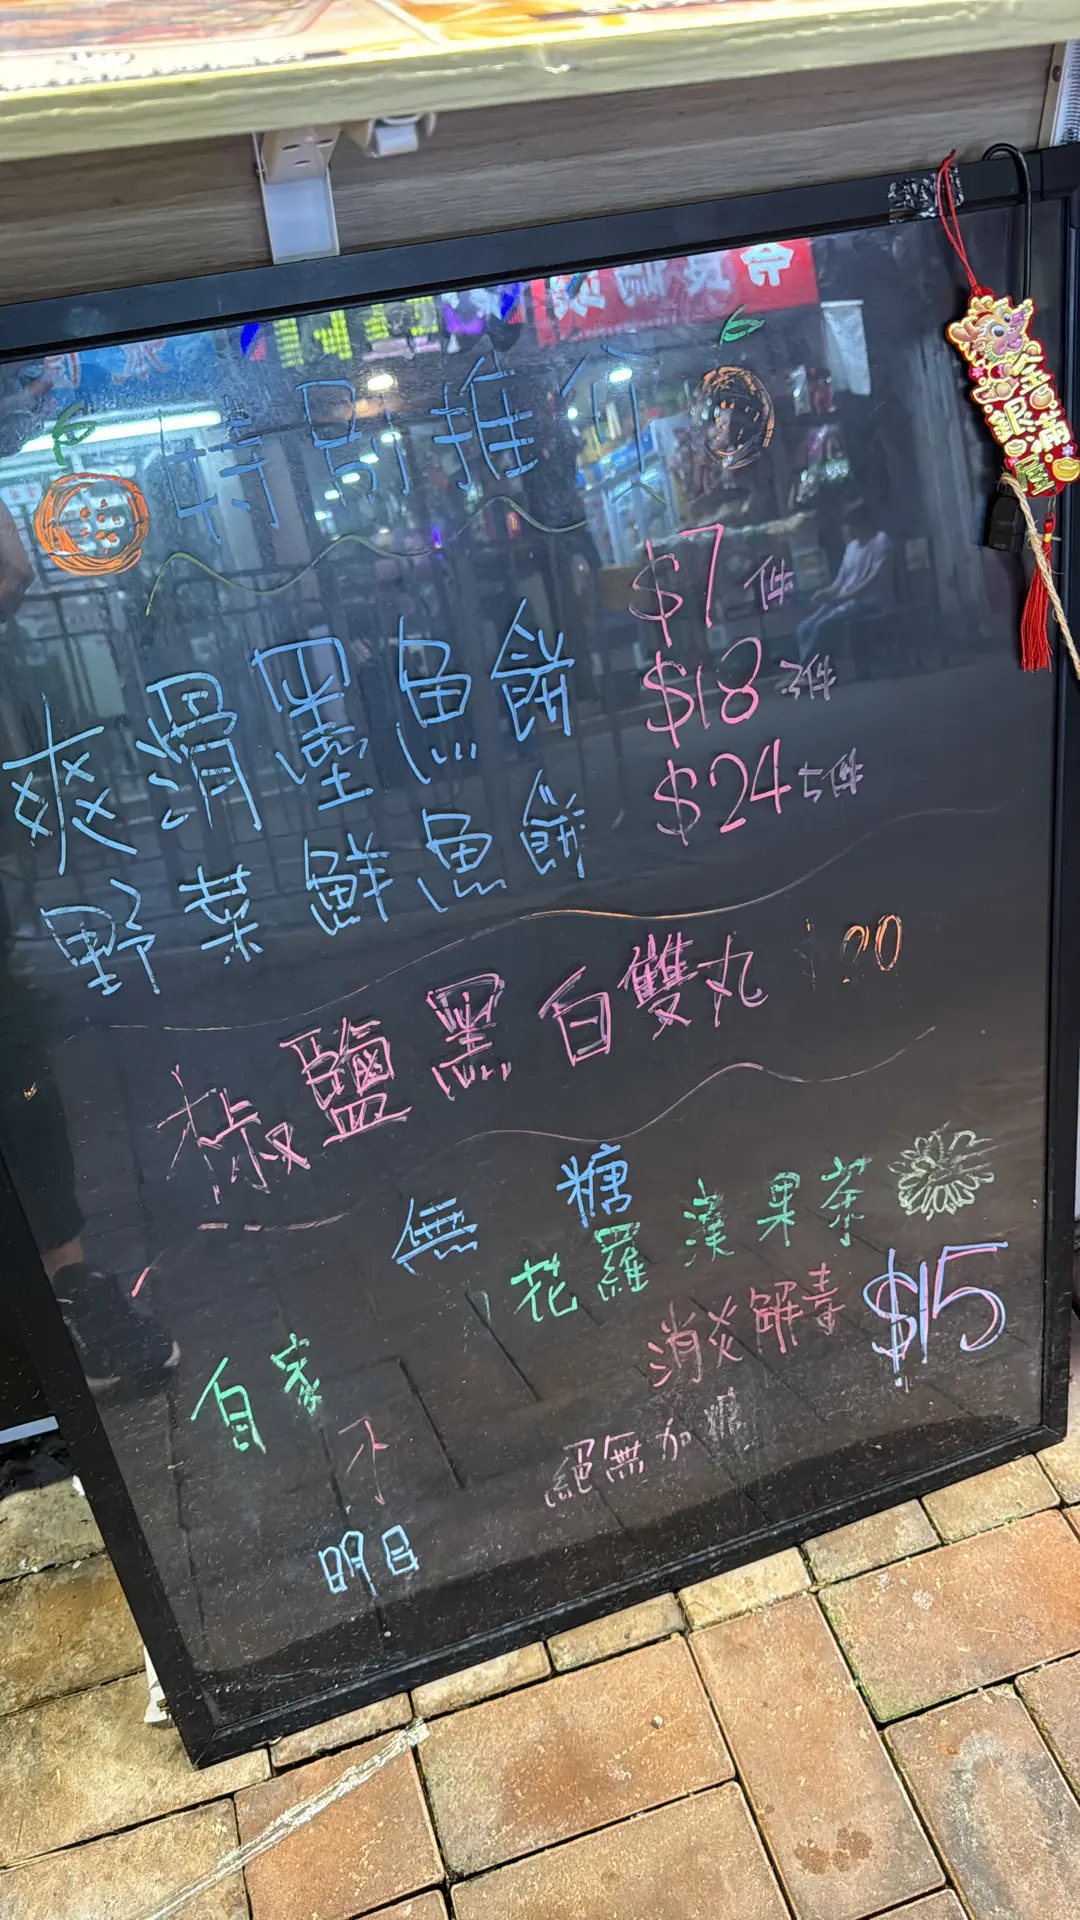 特別推介
$7件
爽滑墨魚餅 $18 3件
野菜鮮魚餅 $24 5件
椒鹽黑白雙丸 20
無糖
花羅漢果茶
消炎解毒 $15
自家
不
絕無加糖
明目